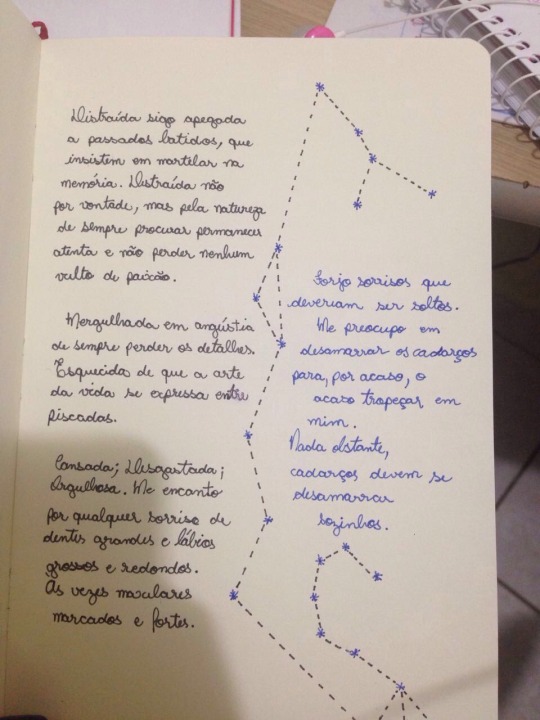 Distraída sigo apegada
a passados batidos, que
insistem em martelar na
memória. Distraída não
por vontade, mas pela natureza
de sempre procurar permanecer
atenta e não perder nenhum
vulto de paixão.
Mergulhada em angústia
de sempre perder os detalhes.
Esquecida de que a arte
da vida se expressa entre
piscadas.
Cansada; Desgastada;
Orgulhosa. Me encanto
por qualquer sorriso de
dentes grandes e lábios
grossos e redondos.
As vezes maxilares
marcados e fortes.
Forjo sorrisos que
deveriam ser soltos.
Me preocupo em
desamarrar os cadarços
para, por acaso, o
acaso tropeçar em
mim.
Nada obstante,
cadarços devem se
desamarrar
sozinhos.